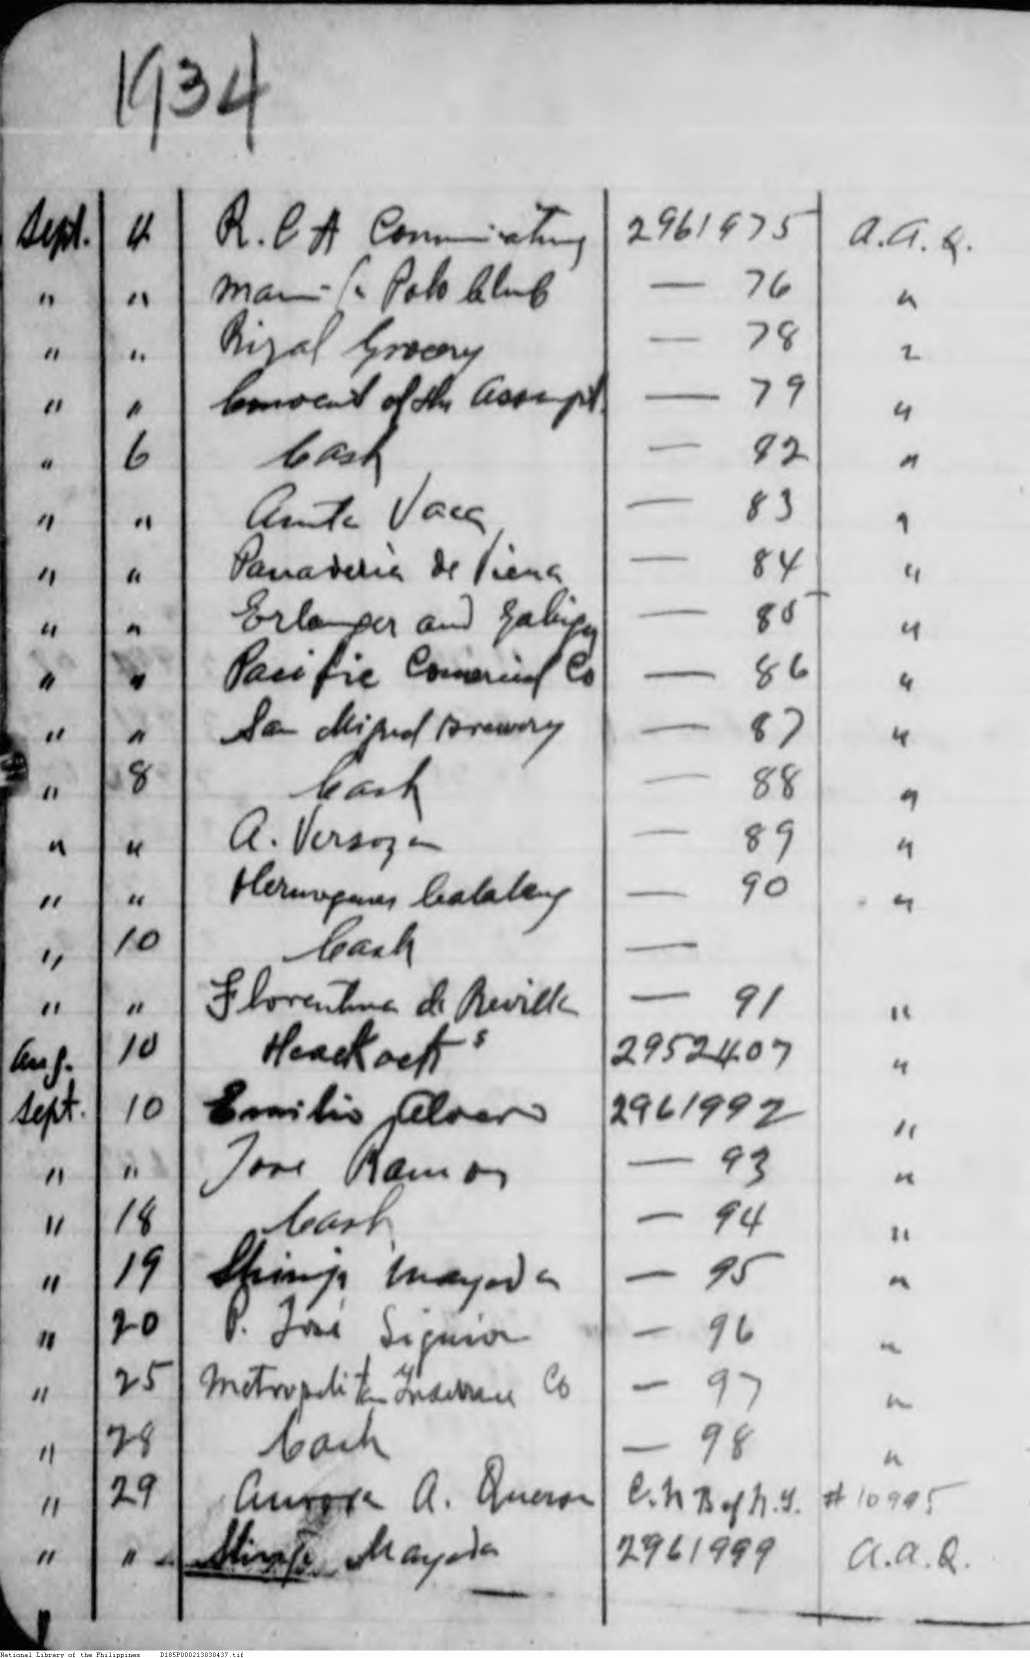 1934
Sept. 4 R.C A Communications 2961975 A.A.Q.
" " Manila Polo Club — 76 "
" " Rizal Grocery — 78 "
" " Convent of the Assumpt. — 79 "
" 6 Cash — 82 "
" " Anita Vaca — 83 "
" " Panaderia de Viena — 84 "
" " Erlanger and Galinger — 85 "
" " Pacific Comercial Co — 86 "
" " San Miguel Brewery — 87 "
" 8 Cash — 88 "
" " A. Versoza — 89 "
" " Hermogenes — 90 "
" 10 Cash —
" " Florentina de Revilla — 91 "
Aug. 10 Heackock s 2952407 "
Sept. 10 Emilio Alvero 2961992 "
" " Jose Ramos — 93 "
" 18 Cash — 94 "
" 19 Shinji Mayeda — 95 "
" 20 P. José Siguion — 96 "
" 25 Metropolitan Insurance Co — 97 "
" 28 Cash — 98 "
" 29 Aurora A. Quezon C.N B of N.Y. # 10995
" " Shinji Mayeda 2961999 A.A.Q.
National Library of the Philippines D185P000213030437.tif